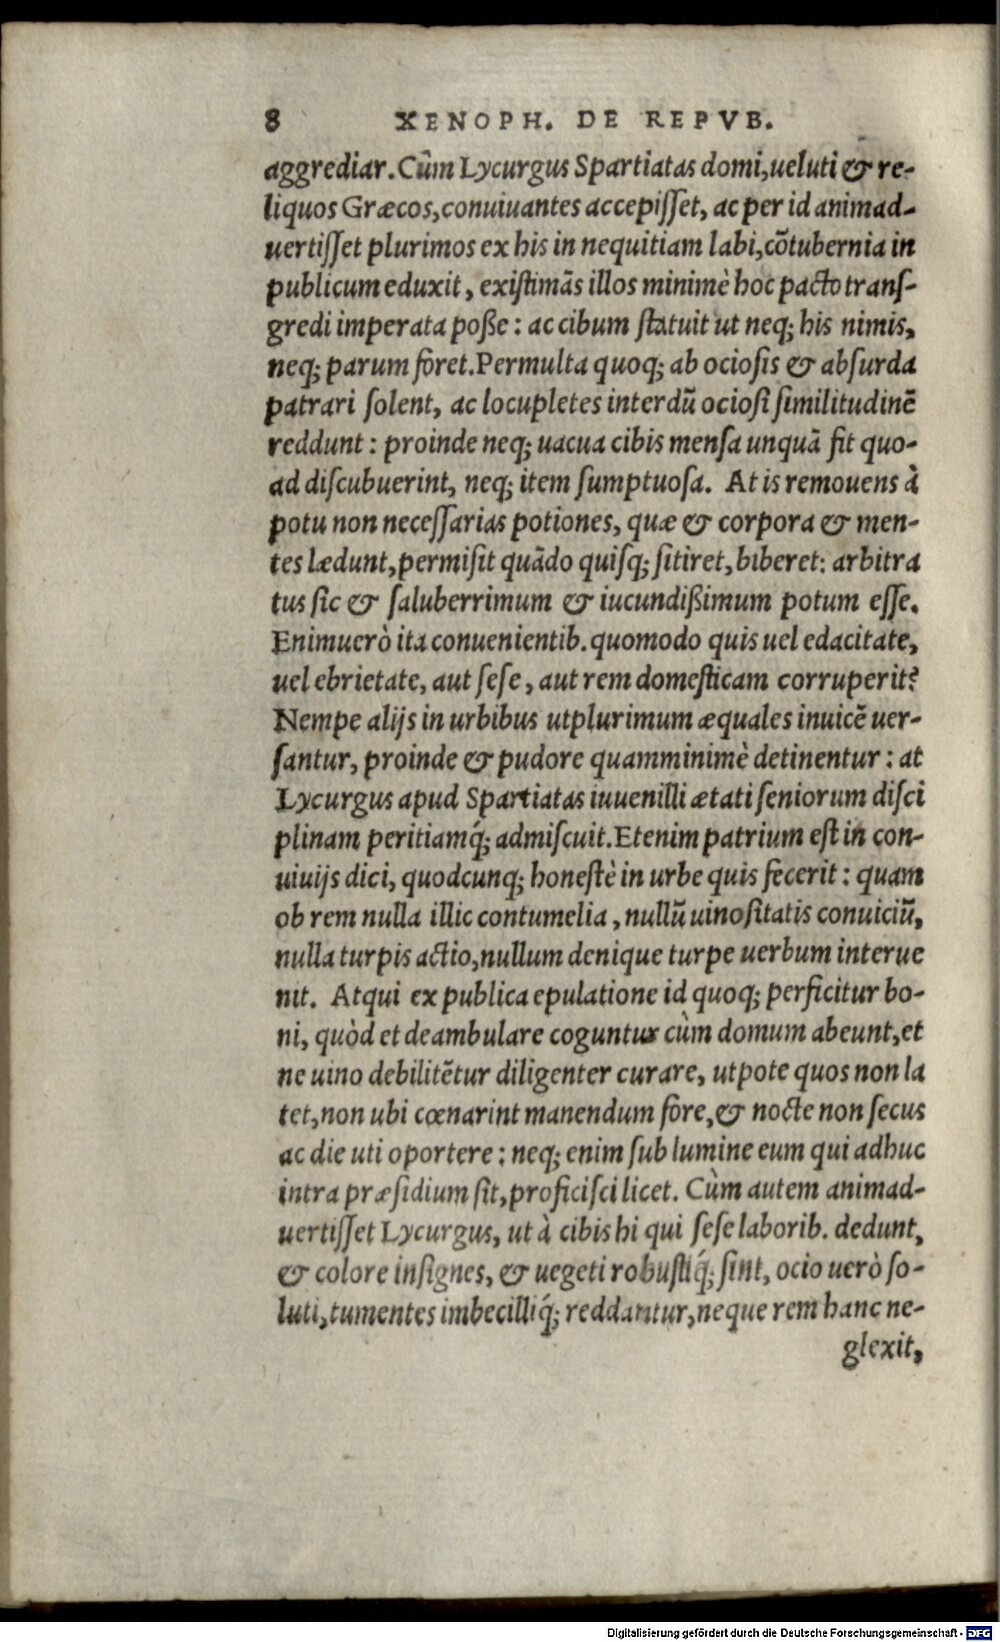 8 XENOPH. DE REPVB.
aggrediar. Cûm Lycurgus Spartiatas domi, ueluti & re-
liquos Græcos, conuiuantes accepiſſet, ac per id animad-
uertiſſet plurimos ex his in nequitiam labi, cõtubernia in
publicum eduxit, exiſtimãs illos minimè hoc pacto tranſ-
gredi imperata poße: ac cibum ſtatuit ut neq; his nimis,
neq; parum foret. Permulta quoq; ab ocioſis & abſurda
patrari ſolent, ac locupletes interdũ ocioſi ſimilitudinẽ
reddunt: proinde neq; uacua cibis menſa unquã fit quo-
ad diſcubuerint, neq; item ſumptuoſa. At is remouens à
potu non neceſſarias potiones, quæ & corpora & men-
tes lædunt, permiſit quãdo quiſq; ſitiret, biberet: arbitra
tus ſic & ſaluberrimum & iucundißimum potum eſſe.
Enimuerò ita conuenientib. quomodo quis uel edacitate,
uel ebrietate, aut ſeſe, aut rem domeſticam corruperit?
Nempe alijs in urbibus utplurimum æquales inuicẽ uer-
ſantur, proinde & pudore quamminimè detinentur: at
Lycurgus apud Spartiatas iuuenilli ætati ſeniorum diſci
plinam peritiamq́; admiſcuit. Etenim patrium eſt in con-
uiuijs dici, quodcunq; honeſtè in urbe quis fecerit: quam
ob rem nulla illic contumelia, nullũ uinoſitatis conuiciũ,
nulla turpis actio, nullum denique turpe uerbum interue
nit. Atqui ex publica epulatione id quoq; perficitur bo-
ni, quòd et deambulare coguntur cùm domum abeunt, et
ne uino debilitẽtur diligenter curare, utpote quos non la
tet, non ubi cœnarint manendum fore, & nocte non ſecus
ac die uti oportere: neq; enim ſub lumine eum qui adhuc
intra præſidium ſit, proficiſci licet. Cùm autem animad-
uertiſſet Lycurgus, ut à cibis hi qui ſeſe laborib. dedunt,
& colore inſignes, & uegeti robuſtiq́; ſint, ocio uerò ſo-
luti, tumentes imbecilliq́; reddantur, neque rem hanc ne-
glexit,
Digitalisierung gefördert durch die Deutsche Forschungsgemeinschaft - DFG